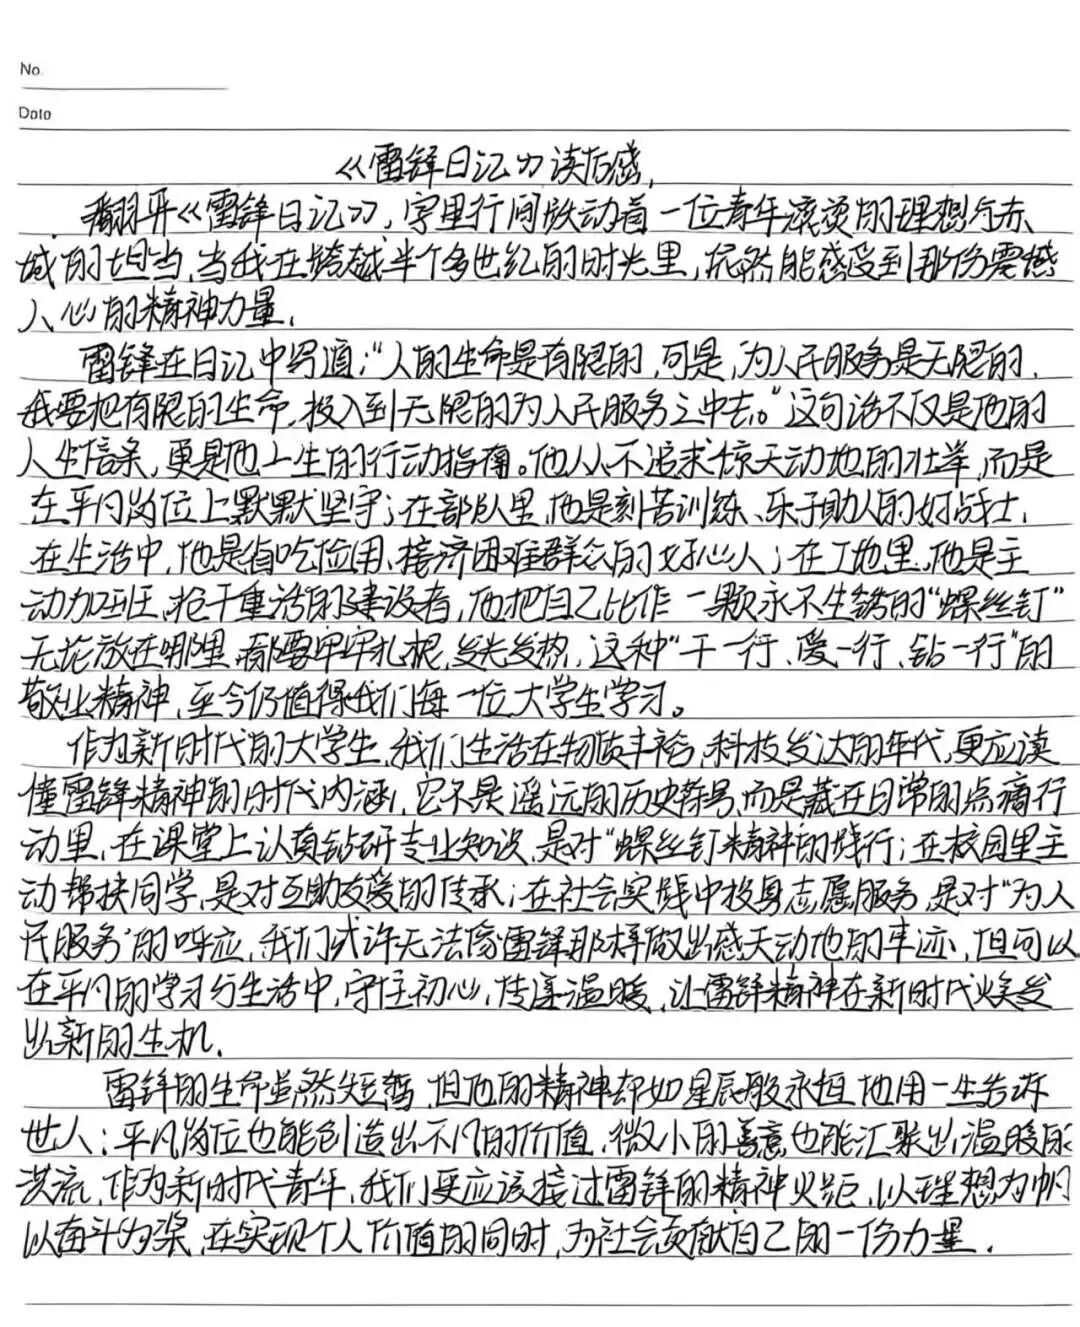 No.
Date
《雷锋日记》读后感.
翻开《雷锋日记》,字里行间跃动着一位青年滚烫的理想与赤
城的担当,当我在跨越半个多世纪的时光里,依然能感受到那份震撼
人心的精神力量.
雷锋在日记中写道:“人的生命是有限的,可是,为人民服务是无限的,
我要把有限的生命,投入到无限的为人民服务之中去。”这句话不仅是他的
人生信条,更是他一生的行动指南。他从不追求惊天动地的壮举,而是
在平凡岗位上默默坚守;在部队里,他是刻苦训练、乐于助人的好战士,
在生活中,他是省吃俭用、接济困难群众的好心人;在工地里,他是主
动加班,抢干重活的建设者,他把自己比作一颗永不生锈的“螺丝钉”
无论放在哪里,都要牢牢扎根,发光发热,这种“干一行、爱一行、钻一行”的
敬业精神,至今仍值得我们每一位大学生学习。
作为新时代的大学生,我们生活在物质丰裕,科技发达的年代,更应读
懂雷锋精神的时代内涵,它不是遥远的历史符号,而是藏在日常的点滴行
动里,在课堂上认真钻研专业知识,是对“螺丝钉精神的践行;在校园里主
动帮扶同学,是对互助友爱的传承;在社会实践中投身志愿服务,是对“为人
民服务”的呼应,我们或许无法像雷锋那样做出感天动地的事迹,但可以
在平凡的学习与生活中,守住初心,传递温暖,让雷锋精神在新时代焕发
出新的生机.
雷锋的生命虽然短暂,但他的精神却如星辰般永恒,他用一生告诉
世人:平凡岗位也能创造出不凡的价值,微小的善意也能汇聚出温暖的
洪流,作为新时代青年,我们更应该接过雷锋的精神火炬,以理想为帆
以奋斗为桨,在实现个人价值的同时,为社会贡献自己的一份力量.